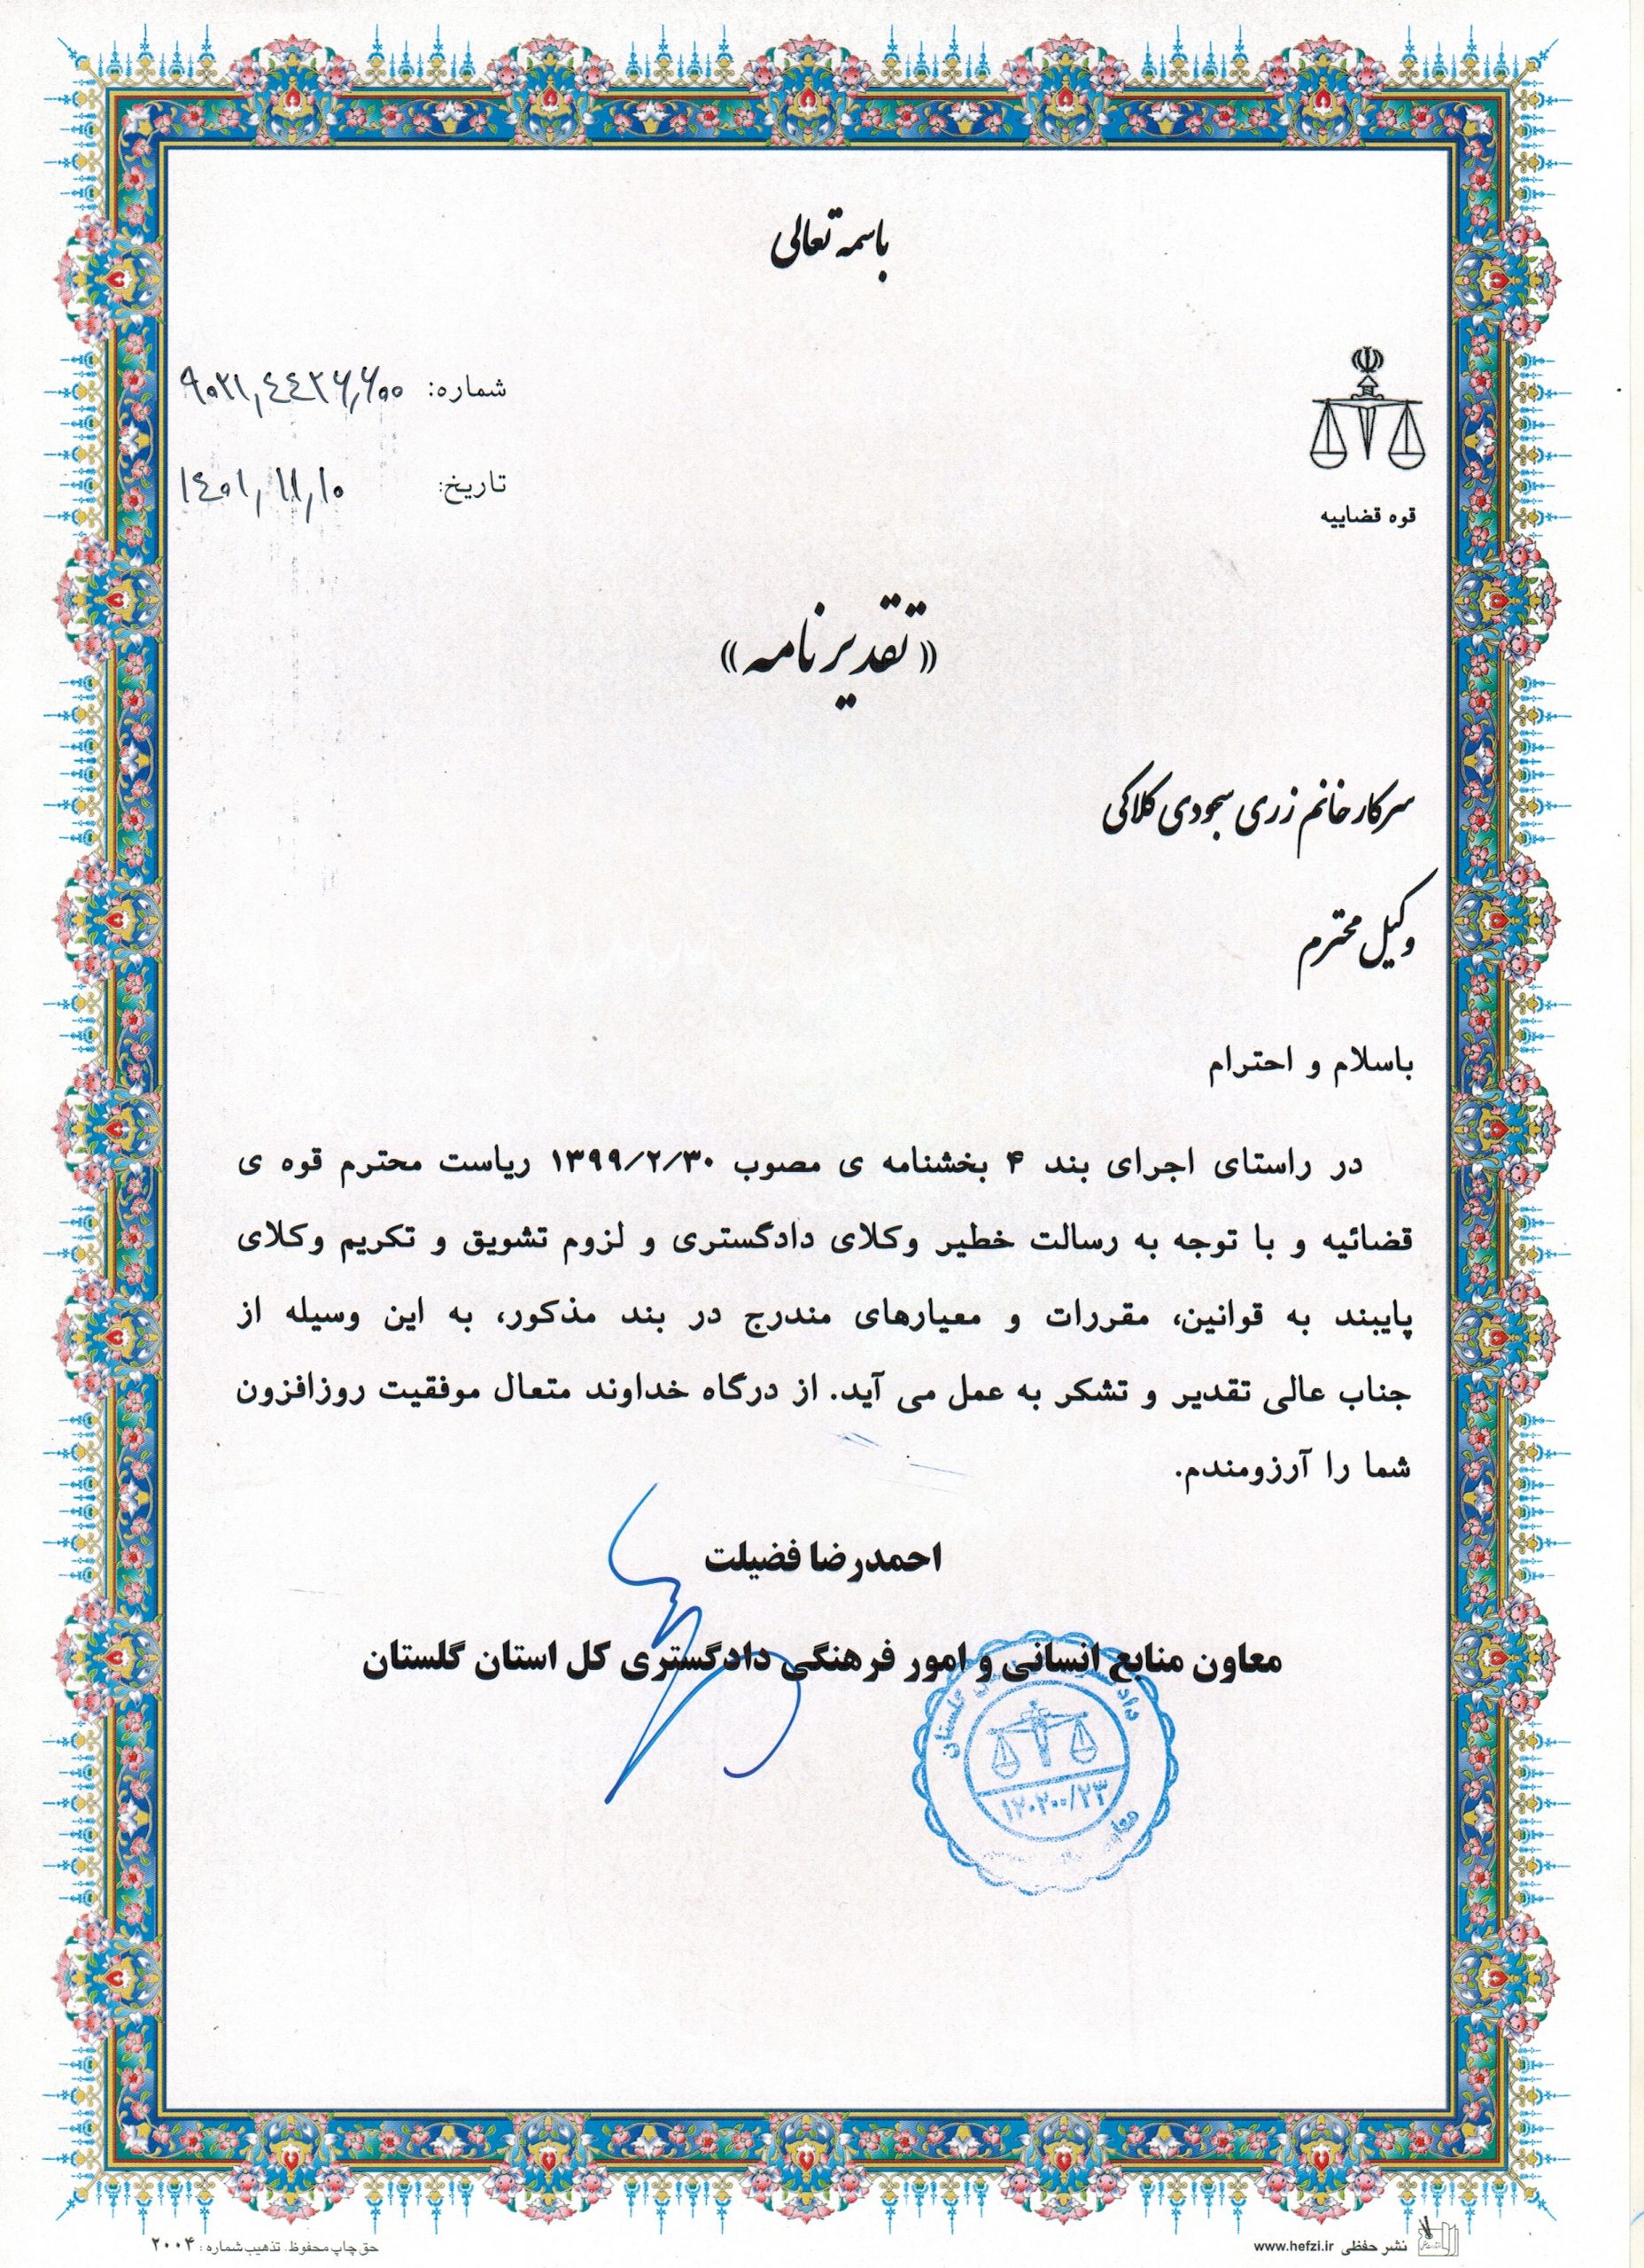 باسمه تعالی
شماره: ۹۰۲۱٫٤٤۲۶٫۶۰۰
تاریخ: ۱٤۰۱٫۱۱٫۱۰
قوه قضاییه
«تقدیرنامه»
سرکار خانم زری سجودی کلاکی
وکیل محترم
باسلام و احترام
در راستای اجرای بند ۴ بخشنامه ی مصوب ۱۳۹۹/۲/۳۰ ریاست محترم قوه ی
قضائیه و با توجه به رسالت خطیر وکلای دادگستری و لزوم تشویق و تکریم وکلای
پایبند به قوانین، مقررات و معیارهای مندرج در بند مذکور، به این وسیله از
جناب عالی تقدیر و تشکر به عمل می آید. از درگاه خداوند متعال موفقیت روزافزون
شما را آرزومندم.
احمدرضا فضیلت
معاون منابع انسانی و امور فرهنگی دادگستری کل استان گلستان
گلستان
۱۲۰۲۰۰/۲۳
نشر حفظی www.hefzi.ir
حق چاپ محفوظ. تذهیب شماره: ۲۰۰۴